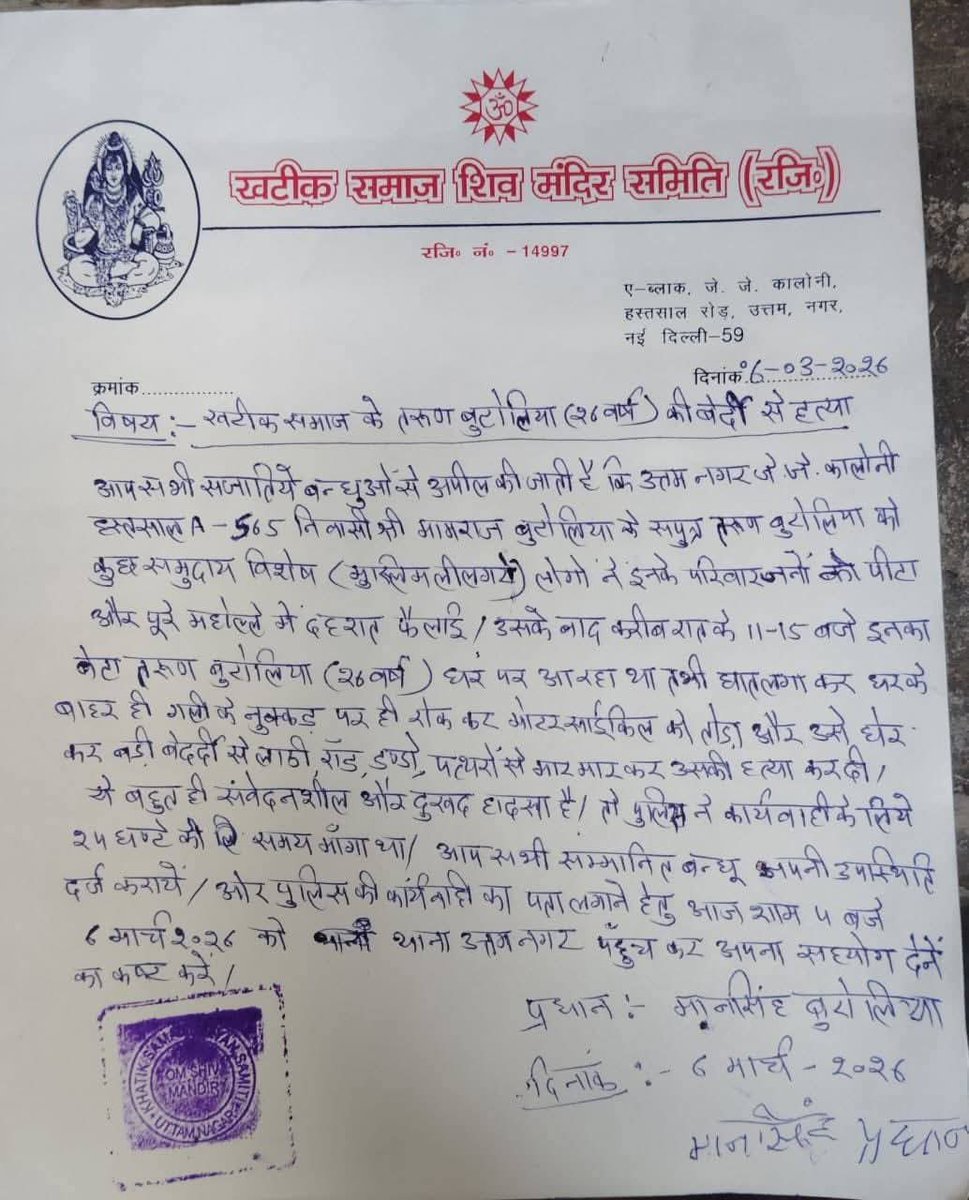 ॐ
खटीक समाज शिव मंदिर समिति (रजि॰)
रजि॰ नं॰ - 14997
ए-ब्लाक, जे. जे. कालोनी,
हस्तसाल रोड़, उत्तम, नगर,
नई दिल्ली-59
क्रमांक..............
दिनांक ६-०३-२०२६
विषय :- खटीक समाज के तरूण बुटोलिया (२६ वर्ष) की बेर्दी से हत्या
आप सभी सजातिये बन्धुओं से अपील की जाती है कि उत्तम नगर जे. जे. कालोनी
हस्तसाल A-565 निवासी श्री मामराज बुटोलिया के सपुत्र तरूण बुटोलिया को
कुछ समुदाय विशेष (मुस्लिम लीलगरो) लोगो ने इनके परिवारजनों को पीटा
और पूरे महोल्ले में दहशत फैलाई / उसके बाद करीब रात के 11-15 बजे इनका
बेटा तरूण बुटोलिया (२६ वर्ष) घर पर आ रहा था तभी घात लगा कर घर के
बाहर ही गली के नुक्कड़ पर ही रोक कर मोटर साईकिल को तोड़ा और उसे घेर
कर बड़ी बेदर्दी से लाठी, रॉड, डण्डो, पत्थरों से मार मार कर उसकी हत्या कर दी /
ये बहुत ही संवेदनशील और दुखद हादसा है / तो पुलिस ने कार्यवाही के लिये
२५ घण्टे की समय माँगा था / आप सभी सम्मानित बन्धू अपनी उपस्थिति
दर्ज करायें / ओर पुलिस की कार्यवाही का पता लगाने हेतु आज शाम ५ बजे
६ मार्च २०२६ को थाना उत्तम नगर पहुँच कर अपना सहयोग देनें
का कष्ट करें /
प्रधान :- मानसिंह बुटोलिया
दिनांक :- ६ मार्च - २०२६
मानसिंह प्रधान
OM SHIV
MANDIR
UTTAM NAGAR